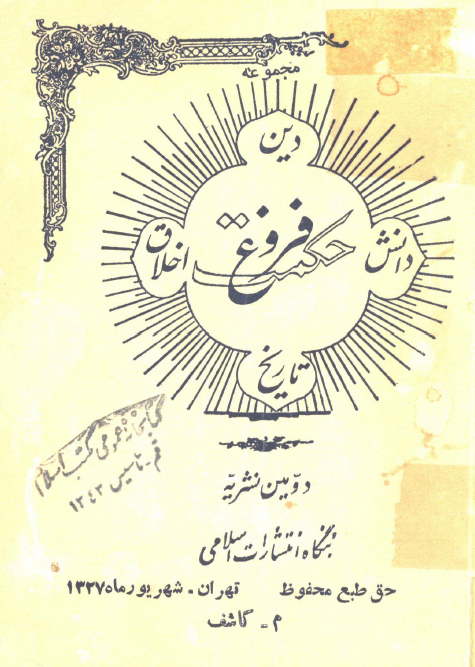 مجموعه
دین
فروغ حکمت
دانش
اخلاق
تاریخ
کتابخانه عمومی مکتب اسلام
قم - تأسیس ۱۳۴۳
دوّمین نشریّه
بنگاه انتشارات اسلامی
حق طبع محفوظ تهران - شهریورماه ۱۳۲۷
م - کاشف